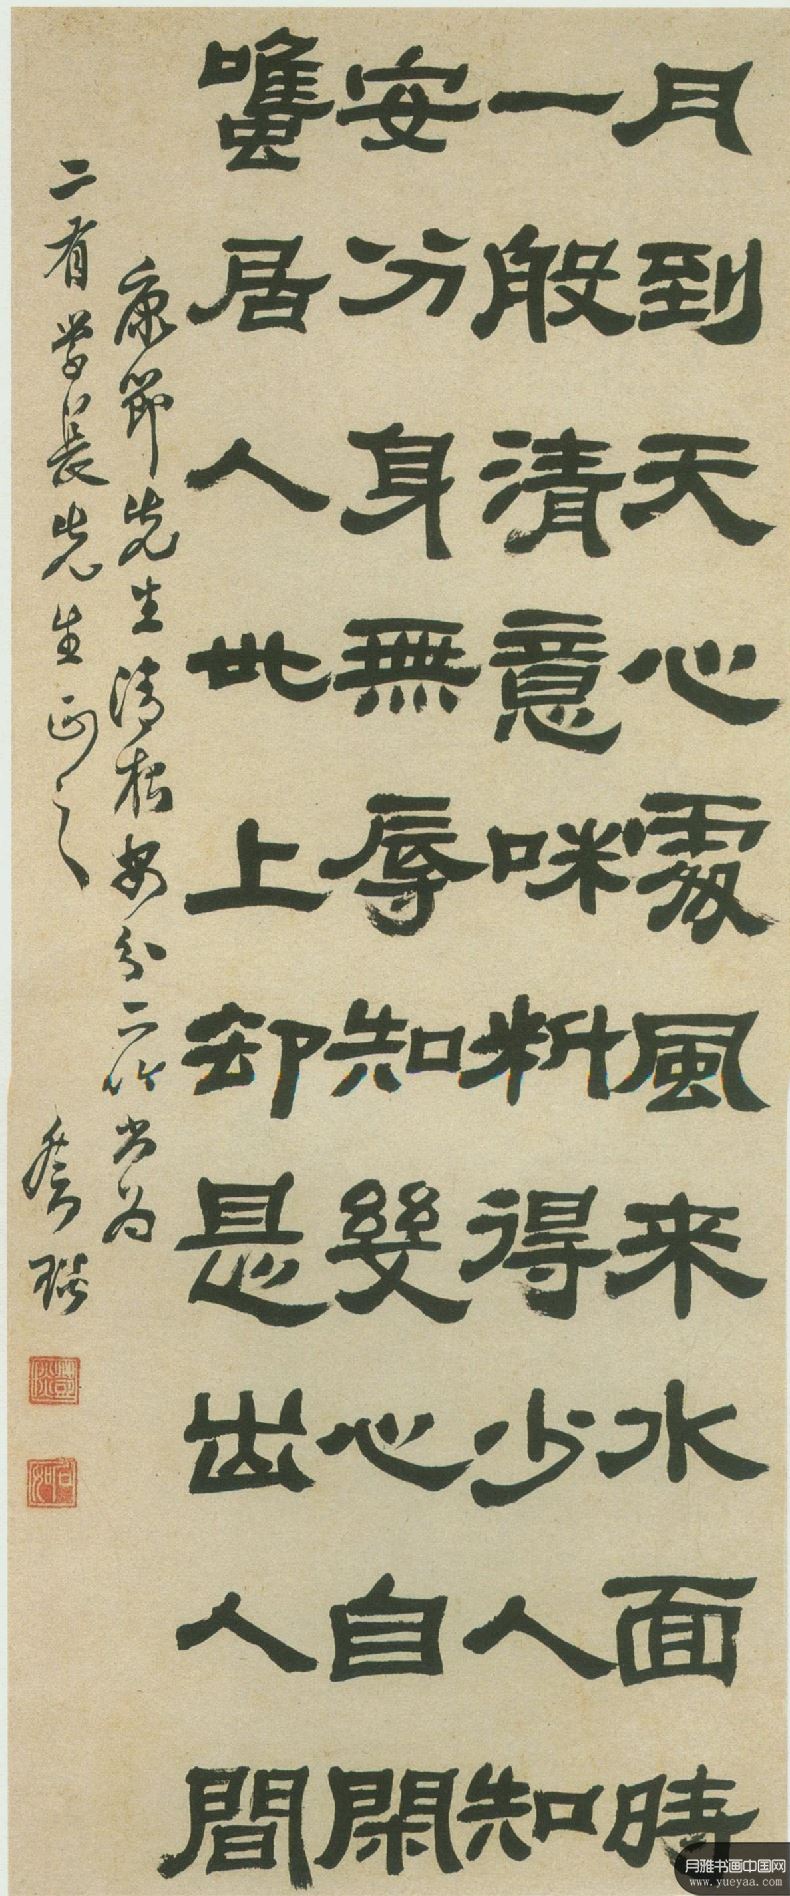 月到天心處風来水面時
一般清意味料得少人知
安分身無辱知幾心自閑
雖居人世上却是出人間
康節先生清夜安分二吟書為
二有學長先生正之
月雅书画中国网
www.yueyaa.com